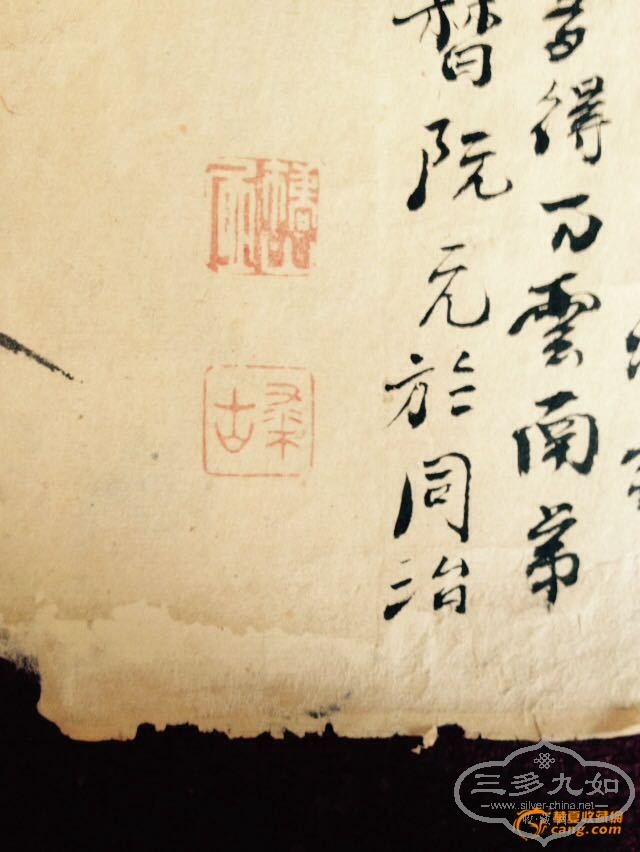 得百雲南第
督阮元於同治
古
三多九如
www.silver-china.net
華夏收藏網
cang.com